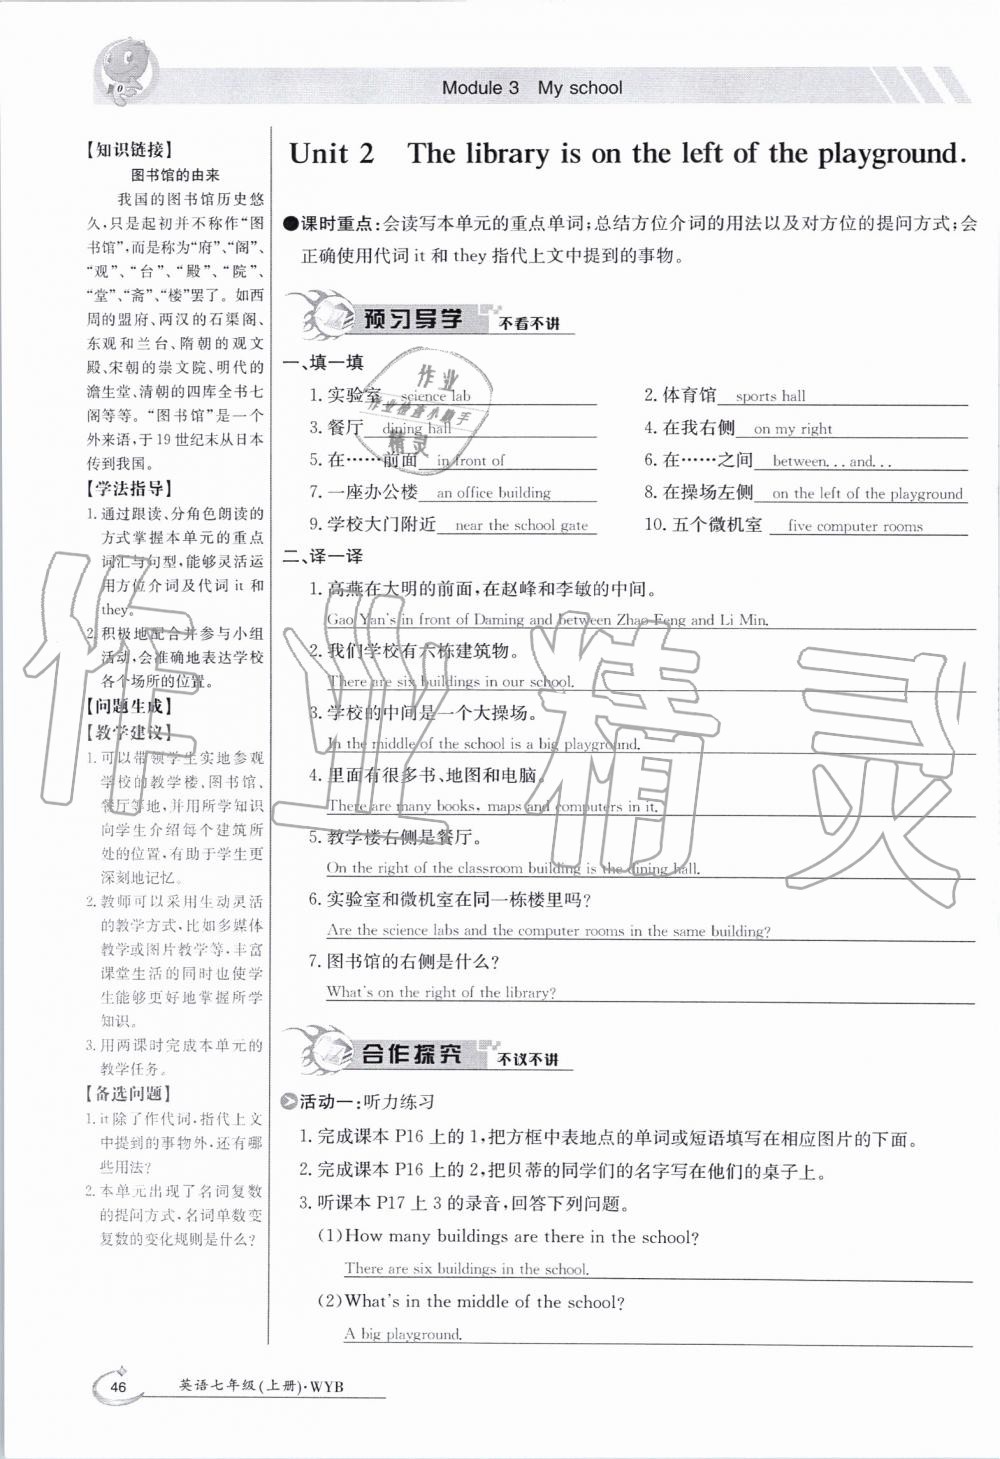 Module 3 My school
【知识链接】
图书馆的由来
我国的图书馆历史悠
久,只是起初并不称作“图
书馆”,而是称为“府”、“阁”、
“观”、“台”、“殿”、“院”、
“堂”、“斋”、“楼”罢了。如西
周的盟府、两汉的石渠阁、
东观和兰台、隋朝的观文
殿、宋朝的崇文院、明代的
澹生堂、清朝的四库全书七
阁等等。“图书馆”是一个
外来语,于19世纪末从日本
传到我国。
【学法指导】
1.通过跟读、分角色朗读的
方式掌握本单元的重点
词汇与句型,能够灵活运
用方位介词及代词it和
they。
2.积极地配合并参与小组
活动,会准确地表达学校
各个场所的位置。
【问题生成】
【教学建议】
1.可以带领学生实地参观
学校的教学楼、图书馆、
餐厅等地,并用所学知识
向学生介绍每个建筑所
处的位置,有助于学生更
深刻地记忆。
2.教师可以采用生动灵活
的教学方式,比如多媒体
教学或图片教学等,丰富
课堂生活的同时也使学
生能够更好地掌握所学
知识。
3.用两课时完成本单元的
教学任务。
【备选问题】
1.it除了作代词,指代上文
中提到的事物外,还有哪
些用法?
2.本单元出现了名词复数
的提问方式,名词单数变
复数的变化规则是什么?
Unit 2 The library is on the left of the playground.
●课时重点:会读写本单元的重点单词;总结方位介词的用法以及对方位的提问方式;会
正确使用代词it和they指代上文中提到的事物。
预习导学 不看不讲
一、填一填
1.实验室 science lab 2.体育馆 sports hall
3.餐厅 dining hall 4.在我右侧 on my right
5.在……前面 in front of 6.在……之间 between...and...
7.一座办公楼 an office building 8.在操场左侧 on the left of the playground
9.学校大门附近 near the school gate 10.五个微机室 five computer rooms
二、译一译
1.高燕在大明的前面,在赵峰和李敏的中间。
Gao Yan's in front of Daming and between Zhao Feng and Li Min.
2.我们学校有六栋建筑物。
There are six buildings in our school.
3.学校的中间是一个大操场。
In the middle of the school is a big playground.
4.里面有很多书、地图和电脑。
There are many books, maps and computers in it.
5.教学楼右侧是餐厅。
On the right of the classroom building is the dining hall.
6.实验室和微机室在同一栋楼里吗?
Are the science labs and the computer rooms in the same building?
7.图书馆的右侧是什么?
What's on the right of the library?
合作探究 不议不讲
活动一:听力练习
1.完成课本P16上的1,把方框中表地点的单词或短语填写在相应图片的下面。
2.完成课本P16上的2,把贝蒂的同学们的名字写在他们的桌子上。
3.听课本P17上3的录音,回答下列问题。
(1)How many buildings are there in the school?
There are six buildings in the school.
(2)What's in the middle of the school?
A big playground.
46 英语七年级(上册)·WYB
作业
作业检查小助手
精灵
作业精灵